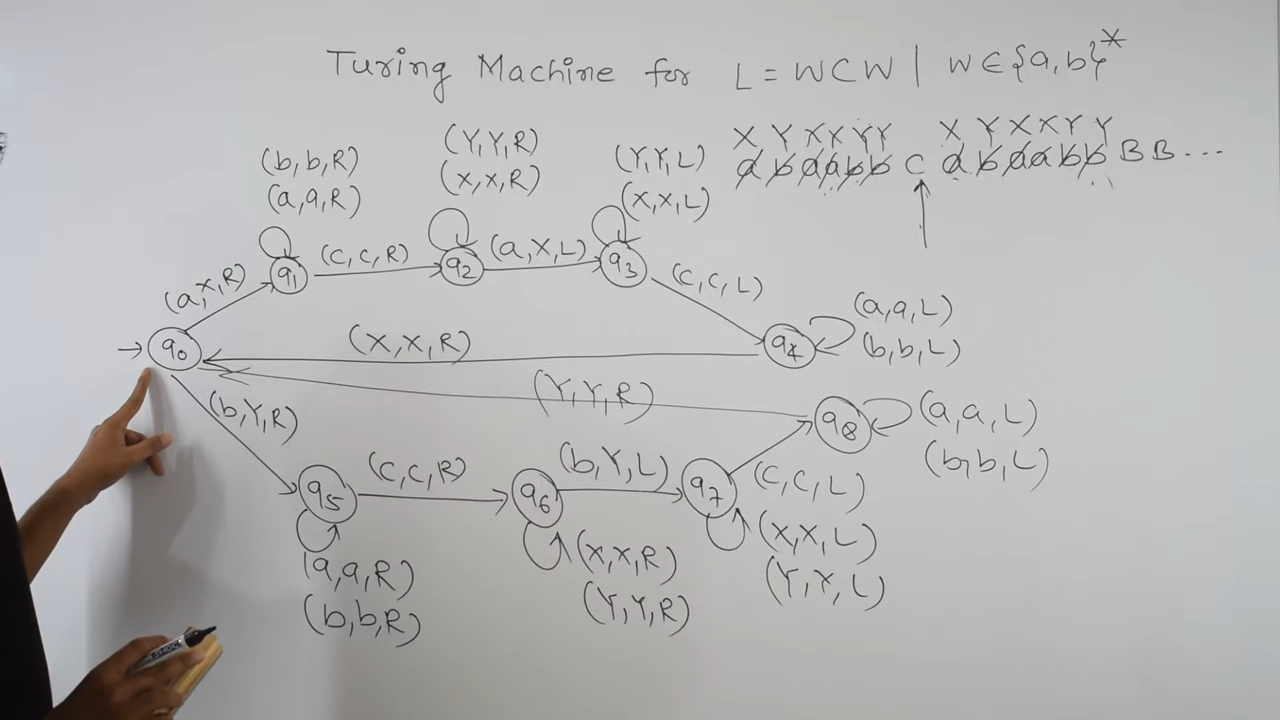 Turing Machine for L = WCW | W∈{a,b}*
X Y X X Y Y X Y X X Y Y
a b a a b b C a b a a b b B B ...
(b,b,R)
(a,a,R)
(Y,Y,R)
(X,X,R)
(Y,Y,L)
(X,X,L)
(a,X,R)
q1
(C,C,R)
q2
(a,X,L)
q3
(C,C,L)
q0
(X,X,R)
q4
(a,a,L)
(b,b,L)
(Y,Y,R)
(b,Y,R)
q8
(a,a,L)
(b,b,L)
q5
(C,C,R)
q6
(b,Y,L)
q7
(C,C,L)
(a,a,R)
(b,b,R)
(X,X,R)
(Y,Y,R)
(X,X,L)
(Y,Y,L)